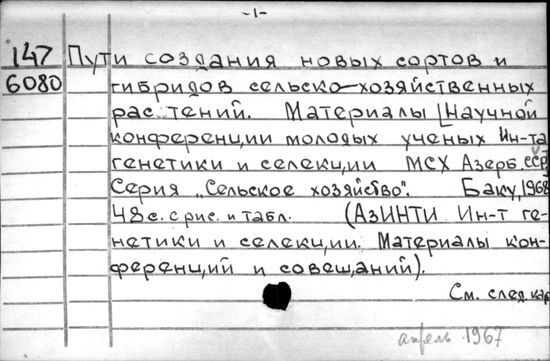 -1-
147 Пути создания новых сортов и
6080 гибридов сельско-хозяйственных
рас тений. Материалы [Научной
конференции молодых ученых Ин-та
генетики и селекции МСХ Азерб. ССР]
Серия „Сельское хозяйство". Баку, 1968
48 с. с рис. и табл. (АзИНТИ Ин-т ге-
нетики и селекции. Материалы кон-
ференций и совещаний).
См. след. кар
апрель 1967